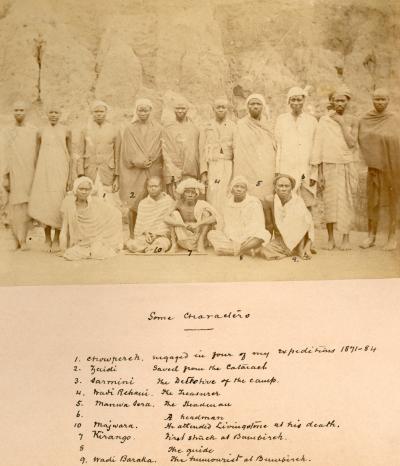 2
5
10
7
9
Some Characters
1. Chowpereh, engaged in four of my expeditions 1871-84
2. Zaidi Saved from the Cataract
3. Sarmini The Detective of the camp.
4. Wadi Rehani. The Treasurer
5. Manwa Sera. The Headman
6. A headman
10 Majwara. He attended Livingstone at his death.
7 Kirango. First struck at Bumbireh.
8 The guide
9. Wadi Baraka. The humourist at Bumbireh.